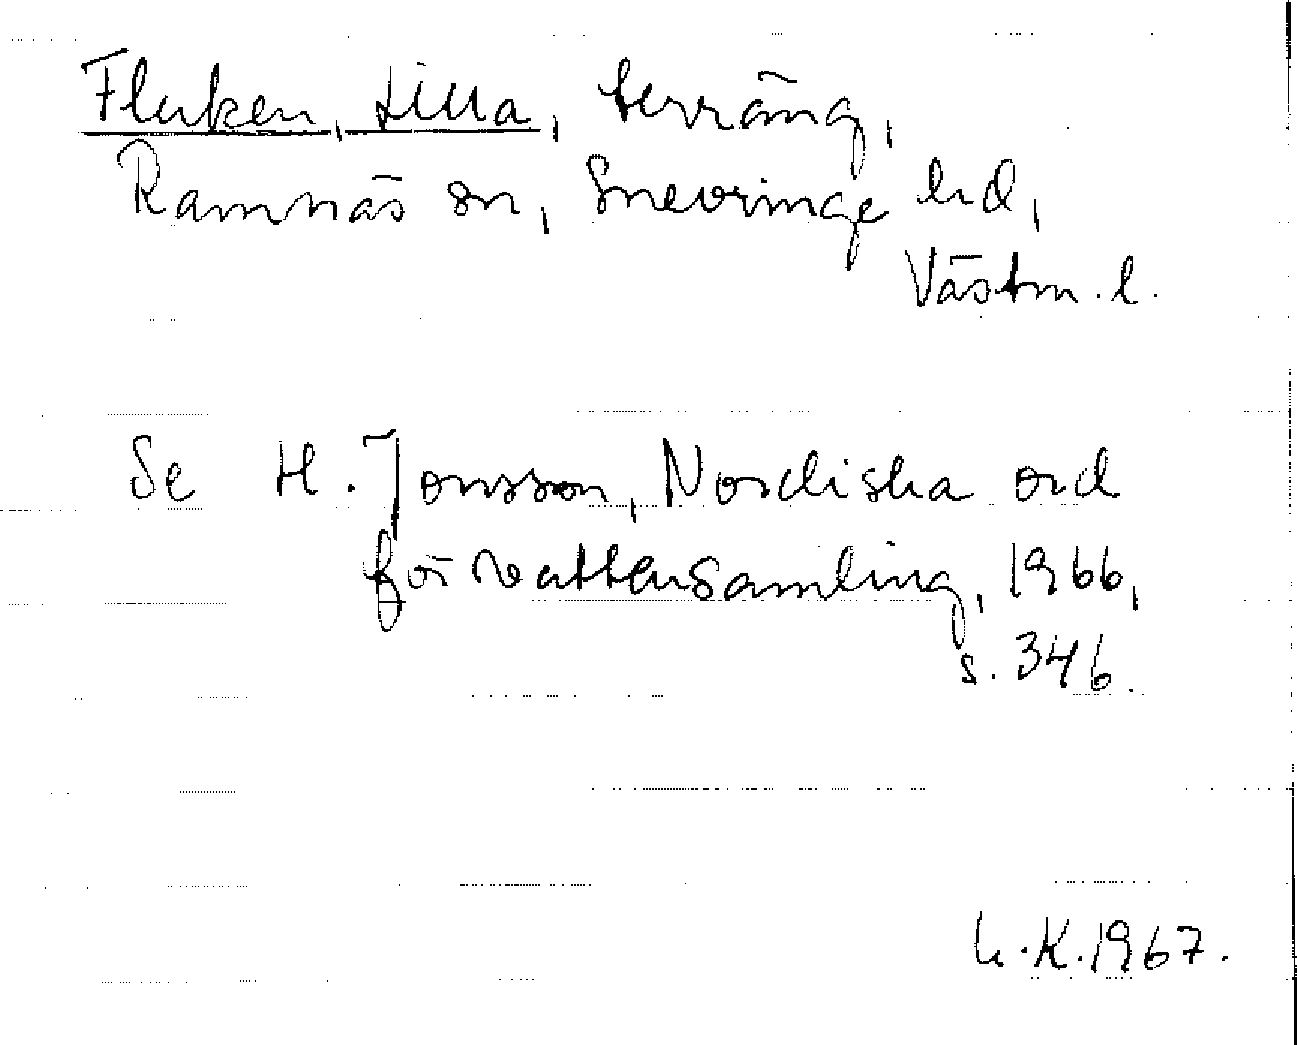 Fluken, Lilla, terräng,
Ramnäs sn, Snevringe hd,
Västm. l.
Se H. Jonsson, Nordiska ord
för vattensamling, 1966,
s. 346.
K. 1967.